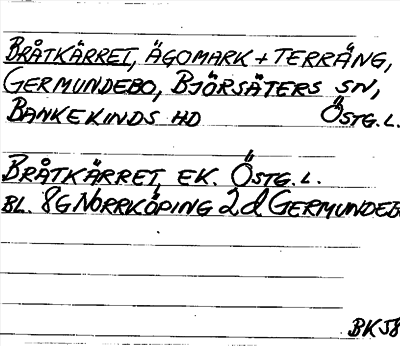 BRÅTKÄRRET, ÄGOMARK + TERRÄNG,
GERMUNDEBO, BJÖRSÄTERS SN,
BANKEKINDS HD ÖSTG. L.
BRÅTKÄRRET, EK. ÖSTG. L.
BL. 8G NORRKÖPING 2d GERMUNDEB
BK58